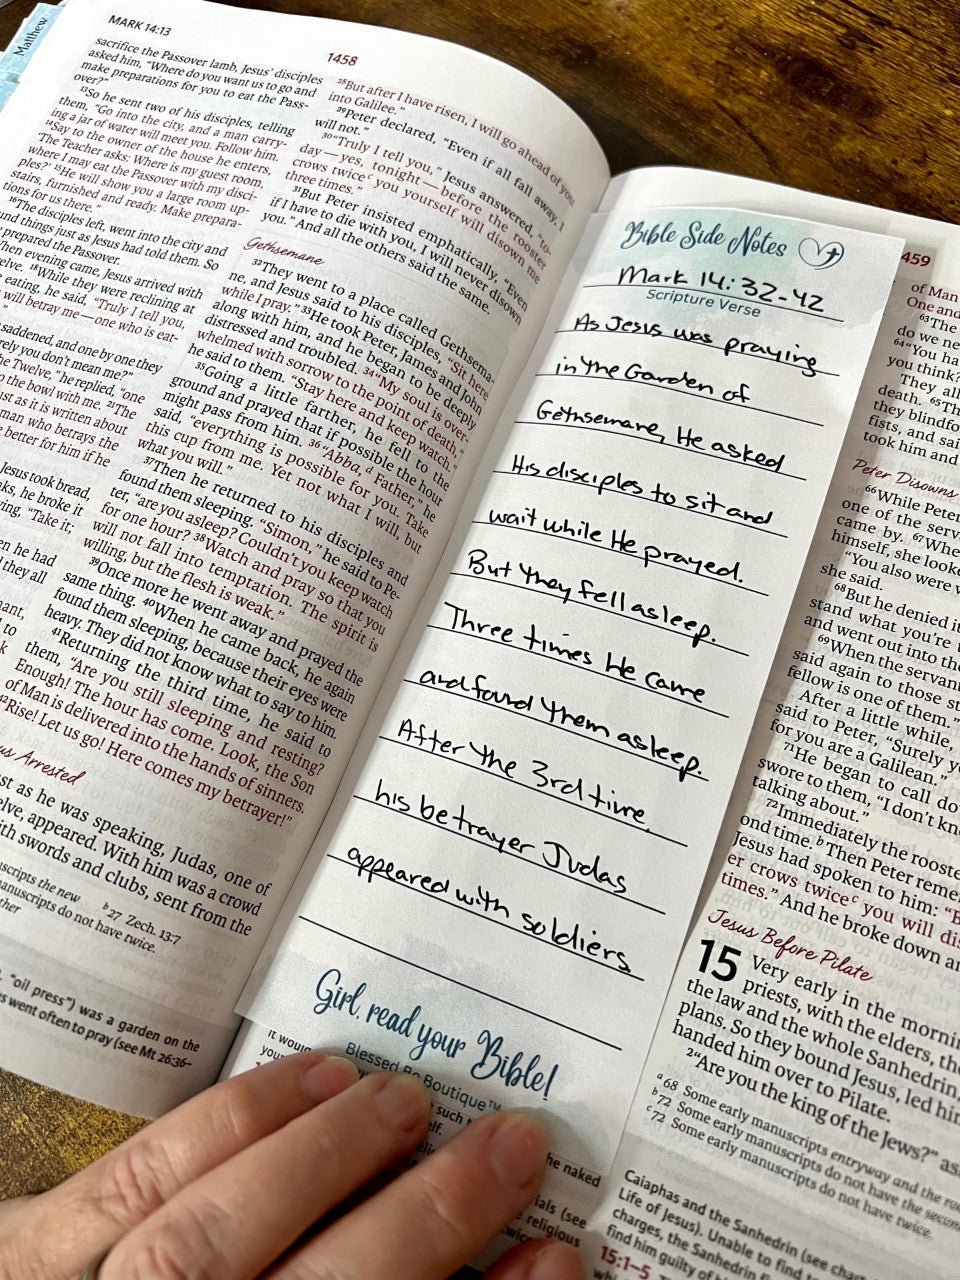 Matthew
MARK 14:13
1458
sacrifice the Passover lamb, Jesus' disciples
asked him, "Where do you want us to go and
make preparations for you to eat the Pass-
over?"
13So he sent two of his disciples, telling
them, "Go into the city, and a man carry-
ing a jar of water will meet you. Follow him.
14Say to the owner of the house he enters,
'The Teacher asks: Where is my guest room,
where I may eat the Passover with my disci-
ples?' 15He will show you a large room up-
stairs, furnished and ready. Make prepara-
tions for us there."
16The disciples left, went into the city and
und things just as Jesus had told them. So
prepared the Passover.
When evening came, Jesus arrived with
elve. 18While they were reclining at
eating, he said, "Truly I tell you,
will betray me—one who is eat-
saddened, and one by one they
rely you don't mean me?"
he Twelve," he replied, "one
o the bowl with me. 21The
ust as it is written about
man who betrays the
e better for him if he
Jesus took bread,
ks, he broke it
ing, "Take it;
en he had
d they all
28But after I have risen, I will go ahead of you
into Galilee."
29Peter declared, "Even if all fall away, I
will not."
30"Truly I tell you," Jesus answered, "to-
day—yes, tonight—before the rooster
crows twicec you yourself will disown me
three times."
31But Peter insisted emphatically, "Even
if I have to die with you, I will never disown
you." And all the others said the same.
Gethsemane
32They went to a place called Gethsema-
ne, and Jesus said to his disciples, "Sit here
while I pray." 33He took Peter, James and John
along with him, and he began to be deeply
distressed and troubled. 34"My soul is over-
whelmed with sorrow to the point of death,"
he said to them. "Stay here and keep watch."
35Going a little farther, he fell to the
ground and prayed that if possible the hour
might pass from him. 36"Abba,d Father," he
said, "everything is possible for you. Take
this cup from me. Yet not what I will, but
what you will."
37Then he returned to his disciples and
found them sleeping. "Simon," he said to Pe-
ter, "are you asleep? Couldn't you keep watch
for one hour? 38Watch and pray so that you
will not fall into temptation. The spirit is
willing, but the flesh is weak."
39Once more he went away and prayed the
same thing. 40When he came back, he again
found them sleeping, because their eyes were
heavy. They did not know what to say to him.
41Returning the third time, he said to
them, "Are you still sleeping and resting?
Enough! The hour has come. Look, the Son
of Man is delivered into the hands of sinners.
Rise! Let us go! Here comes my betrayer!"
us Arrested
st as he was speaking, Judas, one of
elve, appeared. With him was a crowd
th swords and clubs, sent from the
scripts the new b27 Zech. 13:7
anuscripts do not have twice.
ther
"oil press") was a garden on the
s went often to pray (see Mt 26:36–
Bible Side Notes
Mark 14:32-42
Scripture Verse
As Jesus was praying
in the Garden of
Gethsemane, He asked
His disciples to sit and
wait while He prayed.
But they fell asleep.
Three times He came
and found them asleep.
After the 3rd time,
his betrayer Judas
appeared with soldiers.
Girl, read your Bible!
Blessed Be Boutique™
it would
such
elf.
he naked
ials (see
religious
459
of Man
One and
63The
do we ne
64"You ha
you think?
They all
death. 65Th
they blindfo
fists, and sai
took him and
Peter Disowns
66While Peter
one of the serv
came by. 67Whe
himself, she looke
"You also were
she said.
68But he denied it
stand what you're
and went out into the
69When the servan
said again to those st
fellow is one of them."
After a little while,
said to Peter, "Surely y
for you are a Galilean."
71He began to call do
swore to them, "I don't kn
talking about."
72Immediately the rooste
ond time.b Then Peter reme
Jesus had spoken to him: "B
er crows twicec you will dis
times." And he broke down an
Jesus Before Pilate
15 Very early in the mornin
priests, with the elders, the
the law and the whole Sanhedrin,
plans. So they bound Jesus, led him
handed him over to Pilate.
2"Are you the king of the Jews?" as
a68 Some early manuscripts entryway and the roo
b72 Some early manuscripts do not have the second
c72 Some early manuscripts do not have twice.
Caiaphas and the Sanhedrin (see char
Life of Jesus). Unable to find t
charges, the Sanhedrin
find him guilty of b
15:1–5